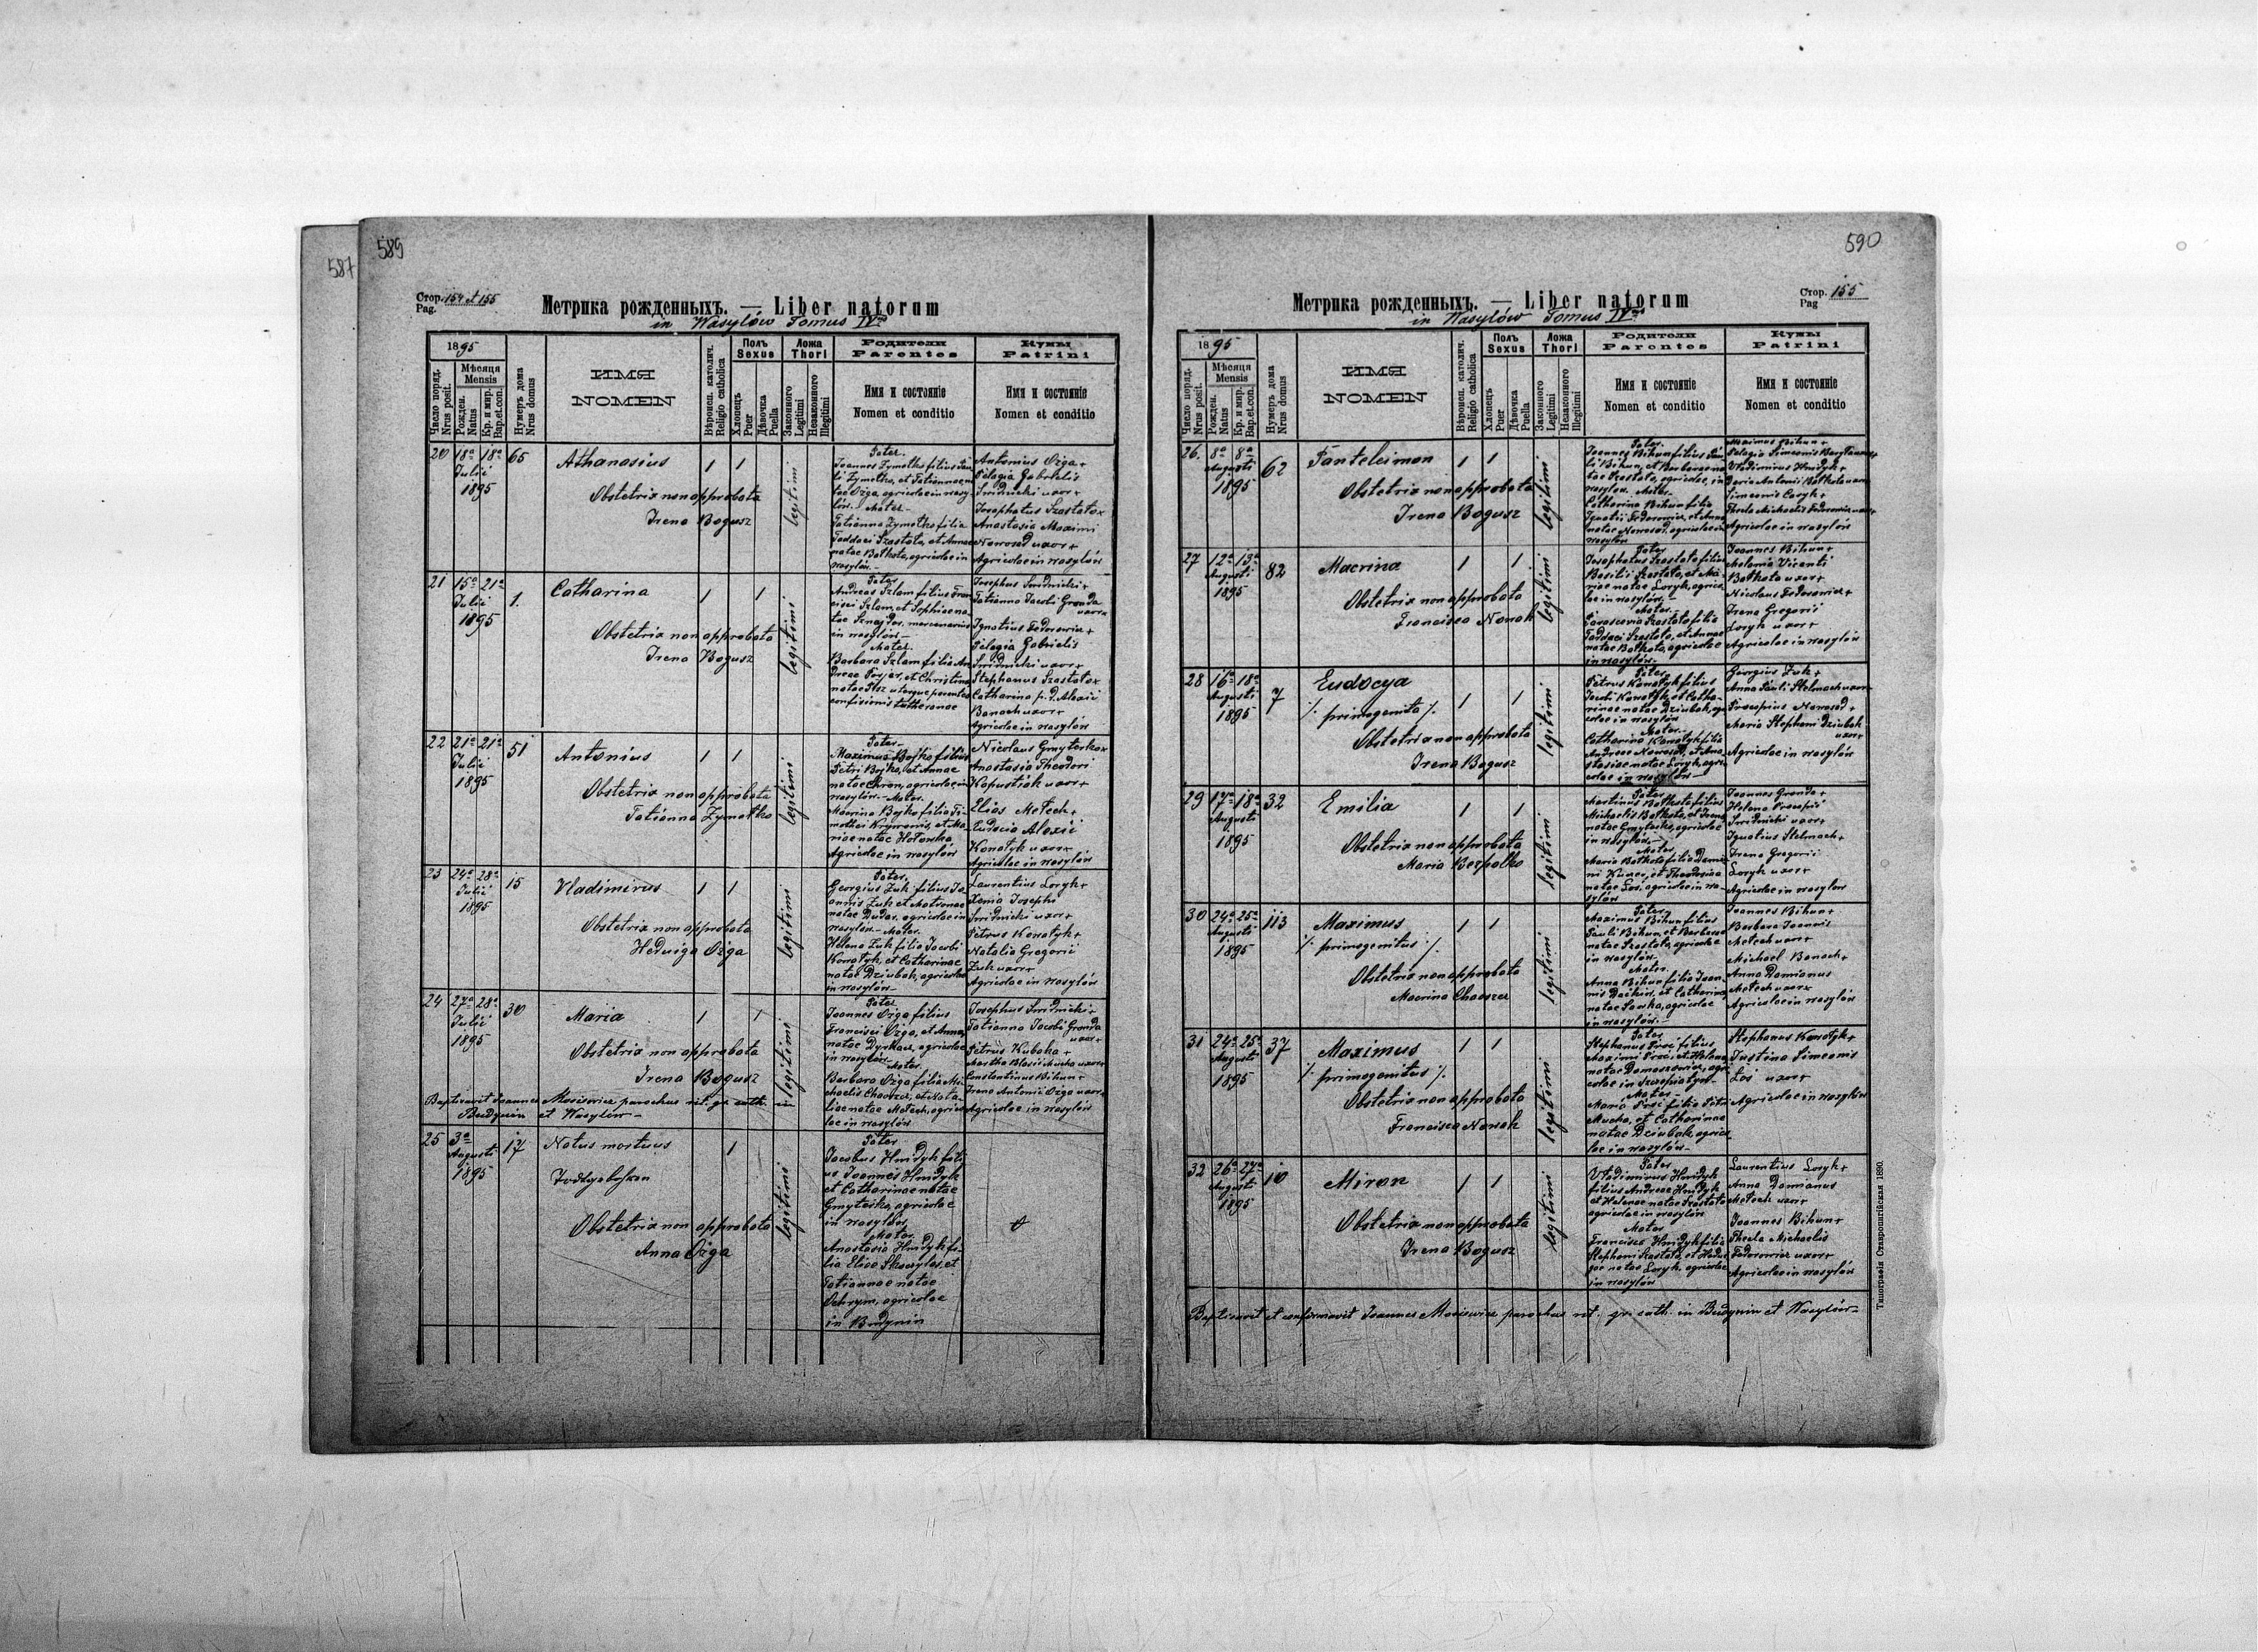 587
589
Стор. 154 et 155
Pag.
Метрика рожденныхъ. — Liber natorum
in Wasylów Tomus IVus
1895
Число поряд.
Nrus posit.
Мѣсяця
Mensis
Рожден.
Natus
Кр. и мир.
Bap. et. con.
Нумеръ дома
Nrus domus
ИМЯ
NOMEN
Вѣроисп. католич.
Religio catholica
Полъ
Sexus
Хлопецъ
Puer
Дѣвочка
Puella
Ложа
Thori
Законного
Legitimi
Незаконного
Illegitimi
Родители
Parentes
Имя и состояніе
Nomen et conditio
Кумы
Patrini
Имя и состояніе
Nomen et conditio
20 18a 18a 65
Julii
1895
Athanasius 1 1
Obstetrix non approbata
Irena Bogusz
legitimi
Pater.
Joannes Zymotko filius Pau-
li Zymotko, et Tatiannae na-
tae Ożga, agricolae in Wasy-
lów. — Mater —
Tatianna Zymotko filia
Taddaei Szostało, et Annae
natae Bałkota, agricolae in
Wasylów. —
Antonius Ożga +
Pelagia Gabrielis
Smidnicki uxor +
Josephatus Szostało x
Anastasia Maximi
Nowosad uxor +
Agricolae in Wasylów
21 15a 21a 1.
Julii
1895
Catharina 1 1
Obstetrix non approbata
Irena Bogusz
legitimi
Pater
Andreas Szlam filius Fran-
cisci Szlam, et Sophiae na-
tae Sznajder, mercenarius
in Wasylów —
Mater.
Barbara Szlam filia An-
dreae Forjar, et Christina
natae Ilsz utorque parentes
confisionis Lutheranae
Josephus Smidnicki +
Tatianna Jacobi Gronda
uxor x
Ignatius Fedorowicz +
Pelagia Gabrielis
Smidnicki uxor +
Stephanus Szostało x
Catharina p. d. Alexii
Banach uxor +
Agricolae in Wasylów
22 21a 21a 51
Julii
1895
Antonius 1 1
Obstetrix non approbata
Tatianna Zymotko
legitimi
Pater —
Maximus Bojko filius
Petri Bojko, et Annae
natae Chron, agricolae in
Wasylów. — Mater.
Macrina Bojko filia Ti-
mothei Krywonis, et Ma-
riae natae Hołowka
Agricolae in Wasylów
Nicolaus Gmyterko x
Anastasia Theodori
Kapustiak uxor +
Elias Metech +
Eudocia Alexii
Konatyk uxor x
Agricolae in Wasylów
23 24a 28a 15
Julii
1895
Vladimirus 1 1
Obstetrix non approbata
Hedwiga Ożga
legitimi
Pater.
Georgius Żuk filius Jo-
annis Żuk et Matronae
natae Dudar, agricolae in
Wasylów. — Mater.
Helena Żuk filia Jacobi
Konatyk, et Catharinae
natae Dziubak, agricolae
in Wasylów —
Laurentius Loryk +
Xenia Josephi
Smidnicki uxor +
Petrus Konatyk +
Natalia Gregorii
Żuk uxor +
Agricolae in Wasylów
24 27a 28a 30
Julii
1895
Maria 1 1
Obstetrix non approbata
Irena Bogusz
legitimi
Pater
Joannes Ożga filius
Francisci Ożga, et Anna,
natae Dyrkacz, agricolae
in Wasylów.
Mater.
Barbara Ożga filia Mi-
chaelis Chaszcz, et Nata-
liae natae Metech, agrico-
lae in Wasylów
Josephus Smidnicki +
Tatianna Jacobi Gronda
uxor +
Petrus Kubaka +
Martha Blasii Mucha uxor x
Constantinus Bihun +
Irena Antonii Ożga uxor x
Agricolae in Wasylów
Baptizavit Joannes Mosiewicz parochus rit. gr. cath. in
Budynin et Wasylów —
25 3a 17
Augusti
1895
Natus mortuus 1
Obstetrix non approbata
Anna Ożga
legitimi
Pater
Jacobus Hmidyk fili-
us Joannes Hmidyk
et Catharinae natae
Gmyterko, agricolae
in Wasylów,
Mater.
Anastasia Hmidyk fi-
lia Eliae Skoczylas, et
Tatiannae natae
Ochrym, agricolae
in Budynin
590
Стор. 155
Pag
Метрика рожденныхъ. — Liber natorum
in Wasylów Tomus IVus
1895
Число поряд.
Nrus posit.
Мѣсяця
Mensis
Рожден.
Natus
Кр. и мир.
Bap. et. con.
Нумеръ дома
Nrus domus
ИМЯ
NOMEN
Вѣроисп. католич.
Religio catholica
Полъ
Sexus
Хлопецъ
Puer
Дѣвочка
Puella
Ложа
Thori
Законного
Legitimi
Незаконного
Illegitimi
Родители
Parentes
Имя и состояніе
Nomen et conditio
Кумы
Patrini
Имя и состояніе
Nomen et conditio
26. 8a 8a 62
Augusti
1895
Panteleimon 1 1
Obstetrix non approbata
Irena Bogusz
legitimi
Pater.
Joannes Bihun filius Pau-
li Bihun, et Barbarae na-
tae Szostało, agricolae, in
Wasylów. Mater.
Catharina Bihun filia
Ignatii Fedorowicz, et Anna
natae Nowosad, agricolae in
Wasylów
Maximus Bihun +
Pelagia Simeonis
Vladimirus Hmidyk +
Daria Antonii Bałkota uxor
Simeonis Coryk +
Thecla Michaelis Fedorowicz uxor +
Agricolae in Wasylów
27 12a 13a 82
Augusti
1895
Macrina 1 1
Obstetrix non approbata
Francisca Nowak
legitimi
Pater
Josephatus Szostało filius
Basilii Szostało, et Ma-
riae natae Loryk, agrico-
lae in Wasylów. —
Mater —
Parascevia Szostało filia
Taddaei Szostało, et Annae
natae Bałkota, agricolae
in Wasylów.
Joannes Bihun +
Melania Vicenti
Bałkota uxor +
Nicolaus Fedorowicz +
Irena Gregorii
Loryk uxor +
Agricolae in Wasylów
28 16a 18a 7
Augusti
1895
Eudocya 1 1
·/. primogenita ·/.
Obstetrix non approbata
Irena Bogusz
legitimi
Pater
Petrus Konatyk filius
Jacobi Konatyk, et Catha-
rinae natae Dziubak, agri-
colae in Wasylów
Mater.
Catharina Konatyk filia
Andreae Nowosad, et Ana-
stasiae natae Loryk, agri-
colae in Wasylów —
Georgius Żuk +
Anna Pauli Stelmach uxor
Procopius Nowosad +
Maria Stephani Dziubak
uxor +
Agricolae in Wasylów
29 17a 18a 32
Augusti
1895
Emilia 1 1
Obstetrix non approbata
Maria Bezpalko
legitimi
Pater
Martinus Bałkota filius
Michaelis Bałkota, et Irena
natae Gmyterko, agricolae
in Wasylów —
Mater
Maria Bałkota filia Dami-
ni Kucer, et Theodosia
natae Łoś, agricolae in Wa-
sylów
Joannes Gronda +
Helena Procopii
Smidnicki uxor +
Ignatius Stelmach +
Irena Gregorii
Loryk uxor +
Agricolae in Wasylów
30 24a 25a 113
Augusti
1895
Maximus 1 1
·/. primogenitus ·/.
Obstetrix non approbata
Macrina Chaszcz
legitimi
Pater
Maximus Bihun filius
Pauli Bihun, et Barbarae
natae Szostało, agricolae
in Wasylów.
Mater.
Anna Bihun filia Joan-
nis Dackiw, et Catharina,
natae Sawka, agricolae
in Wasylów. —
Joannes Bihun +
Barbara Joannis
Metech uxor +
Michael Banach +
Anna Damianus
Metech uxor x
Agricolae in Wasylów
31 24a 25a 37
Augusti
1895
Maximus 1 1
·/. primogenitus ·/.
Obstetrix non approbata
Francisca Nowak
legitimi
Pater
Stephanus Proć filius
Maximi Proć, et Helena
natae Domaszowicz, agri-
colae in Szczepiatyn —
Mater —
Maria Proć filia Petri
Mucha, et Catharinae
natae Dziubak, agrico-
lae in Wasylów —
Stephanus Konatyk +
Justina Simeonis
Łoś uxor +
Agricolae in Wasylów
32 26a 27a 10
Augusti
1895
Miron 1 1
Obstetrix non approbata
Irena Bogusz
legitimi
Pater
Vladimirus Hmidyk
filius Andreae Hmidyk
et Helenae natae Szostało
agricolae in Wasylów
Mater
Francisca Hmidyk filia
Stephani Szostało, et Hedwi-
gae natae Loryk, agricolae
in Wasylów
Laurentius Loryk +
Anna Damianus
Metech uxor +
Joannes Bihun +
Thecla Michaelis
Fedorowicz uxor +
Agricolae in Wasylów
Baptizavit et confirmavit Joannes Mosiewicz parochus rit. gr. cath. in Budynin et Wasylów —
Типографія Ставропигійская 1890.